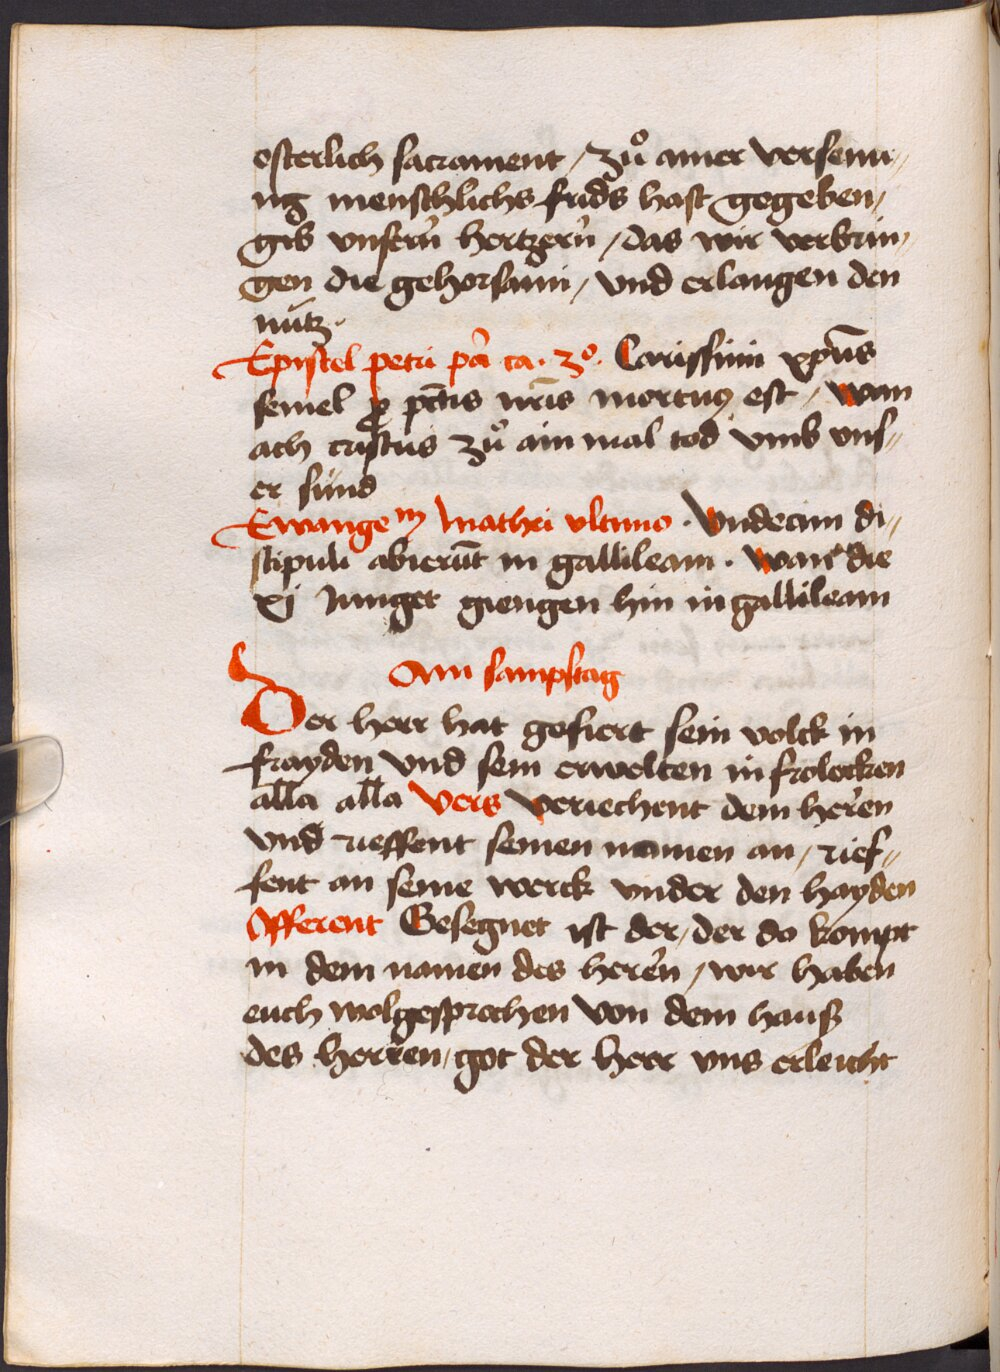 osterlich sacrament / zuͦ ainer versenu-
ng menschlichs frids hast gegeben /
gib vnsern̄ hertzern̄ / das wir verbrin-
gen die gehorsami / vnd erlangen den
nutz .
Epistel petri pͣ ca . 3º . Carissimi xp̄us
semel ꝓ pctīs nr̄is mortuꝰ est / wan
ach cristus zuͦ ain mal tod vmb vns-
er sünd
Ewangeᵐ mathei vltimo . Vndecim di-
scipuli abierūt in gallileam . wan die
xj Junger giengen hin in gallileam
Am sampstag
Der herr hat gefiert sein volck in
frayden vnd sein erwelten in frolocken
all̄a all̄a Vers veriechent dem heren̄
vnd rieffent seinen namen an / rief-
fent an seine werck vnder den hayden
Offerent Gesegnet ist der / der do kompt
in dem namen des heren̄ / wir haben
euch wolgesprochen von dem hauß
des herren / got der herr vns erleicht